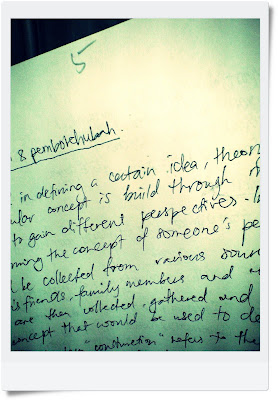 5
& pemboléhubah.
in defining a certain idea, theor
ular concept is build through
to gain different perspectives.
ming the concept of someone's pe
be collected from various sour
is friends, family members and
are then collected, gathered and
oncept that would be used to de
"construction" refers to the